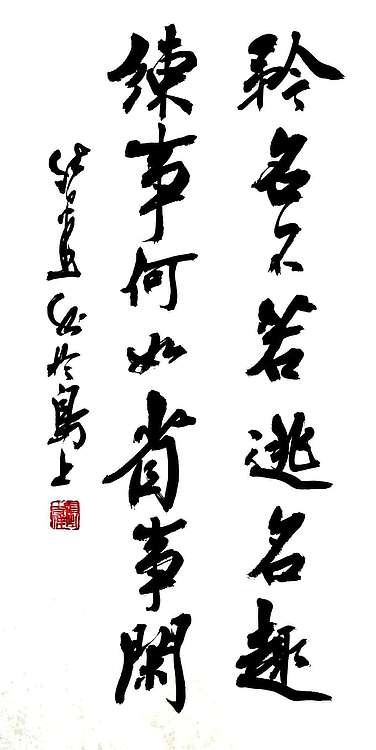 矜名不若逃名趣
練事何如省事閑
於島上